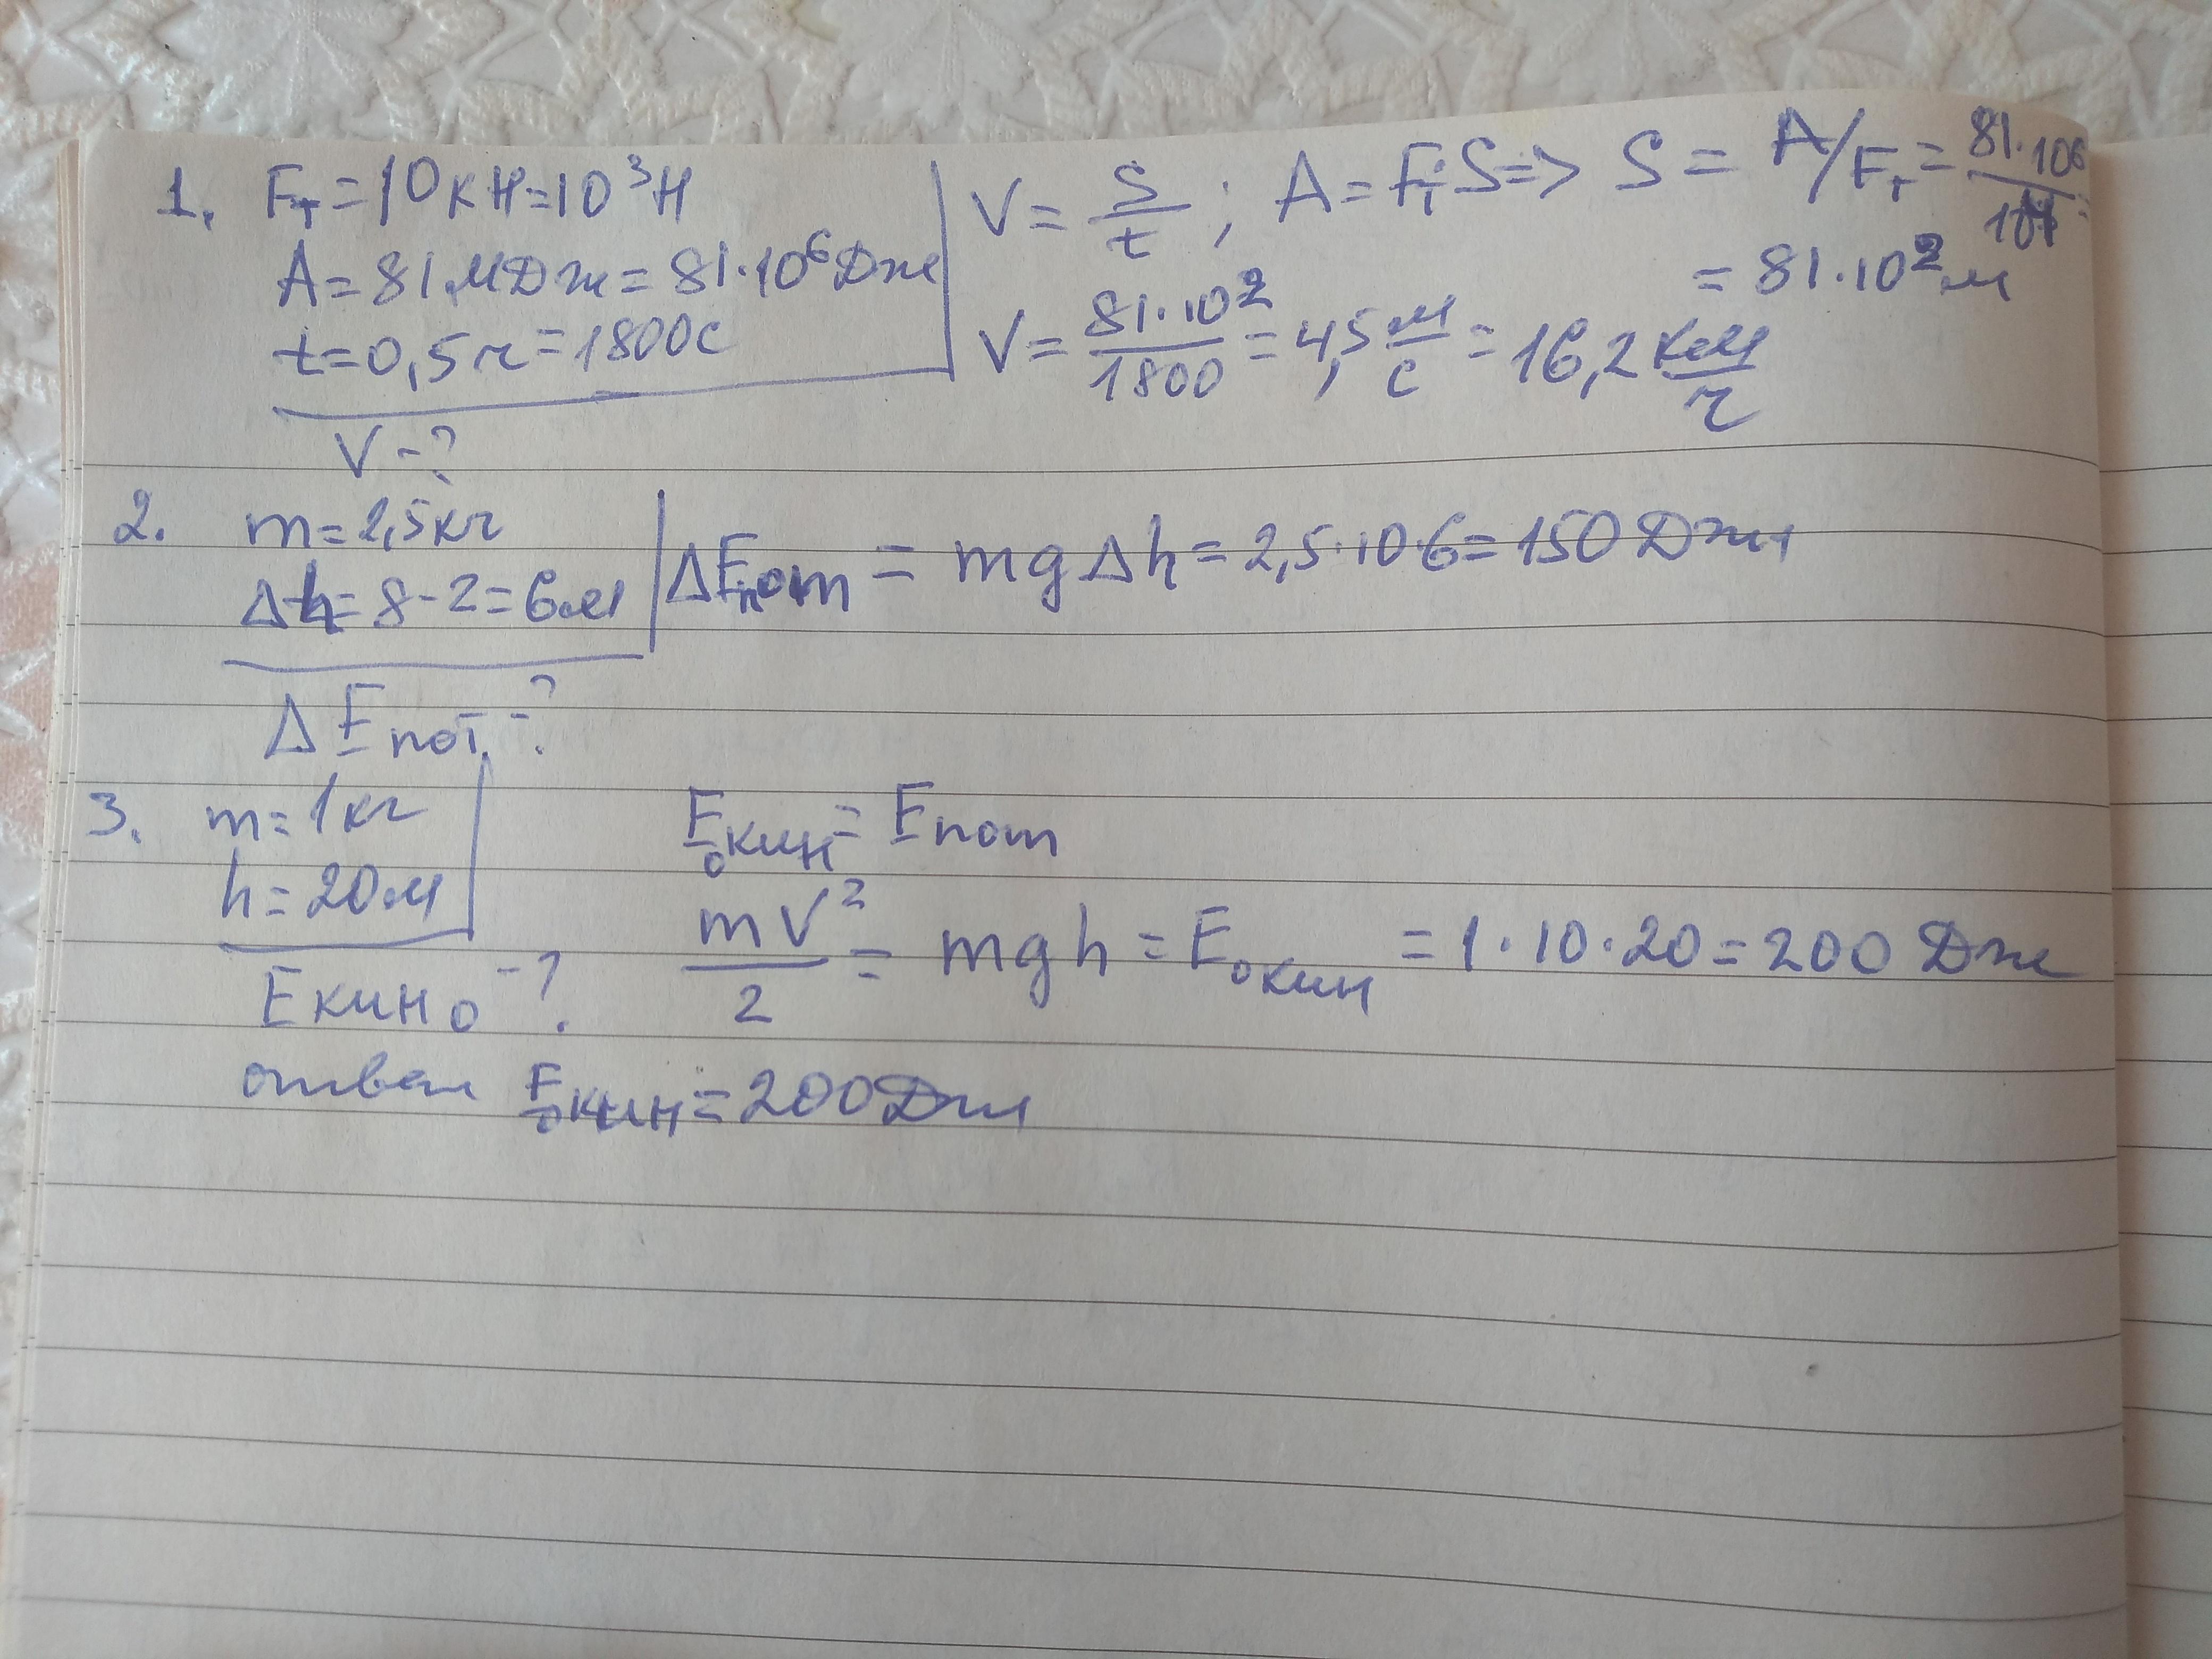 1. Fт = 10 кН = 10³ Н
A = 81 МДж = 81·10⁶ Дж
t = 0,5 ч = 1800 с
V - ?
V = S/t ; A = Fт·S => S = A/Fт = 81·10⁶/10⁴ =
= 81·10² м
V = 81·10²/1800 = 4,5 м/с = 16,2 км/ч
2. m = 2,5 кг
Δh = 8 - 2 = 6 м
ΔEпот. - ?
ΔEпот = mgΔh = 2,5·10·6 = 150 Дж
3. m = 1 кг
h = 20 м
Eкин₀ - ?
E₀кин = Eпот
mV²/2 = mgh = E₀кин = 1·10·20 = 200 Дж
ответ E₀кин = 200 Дж